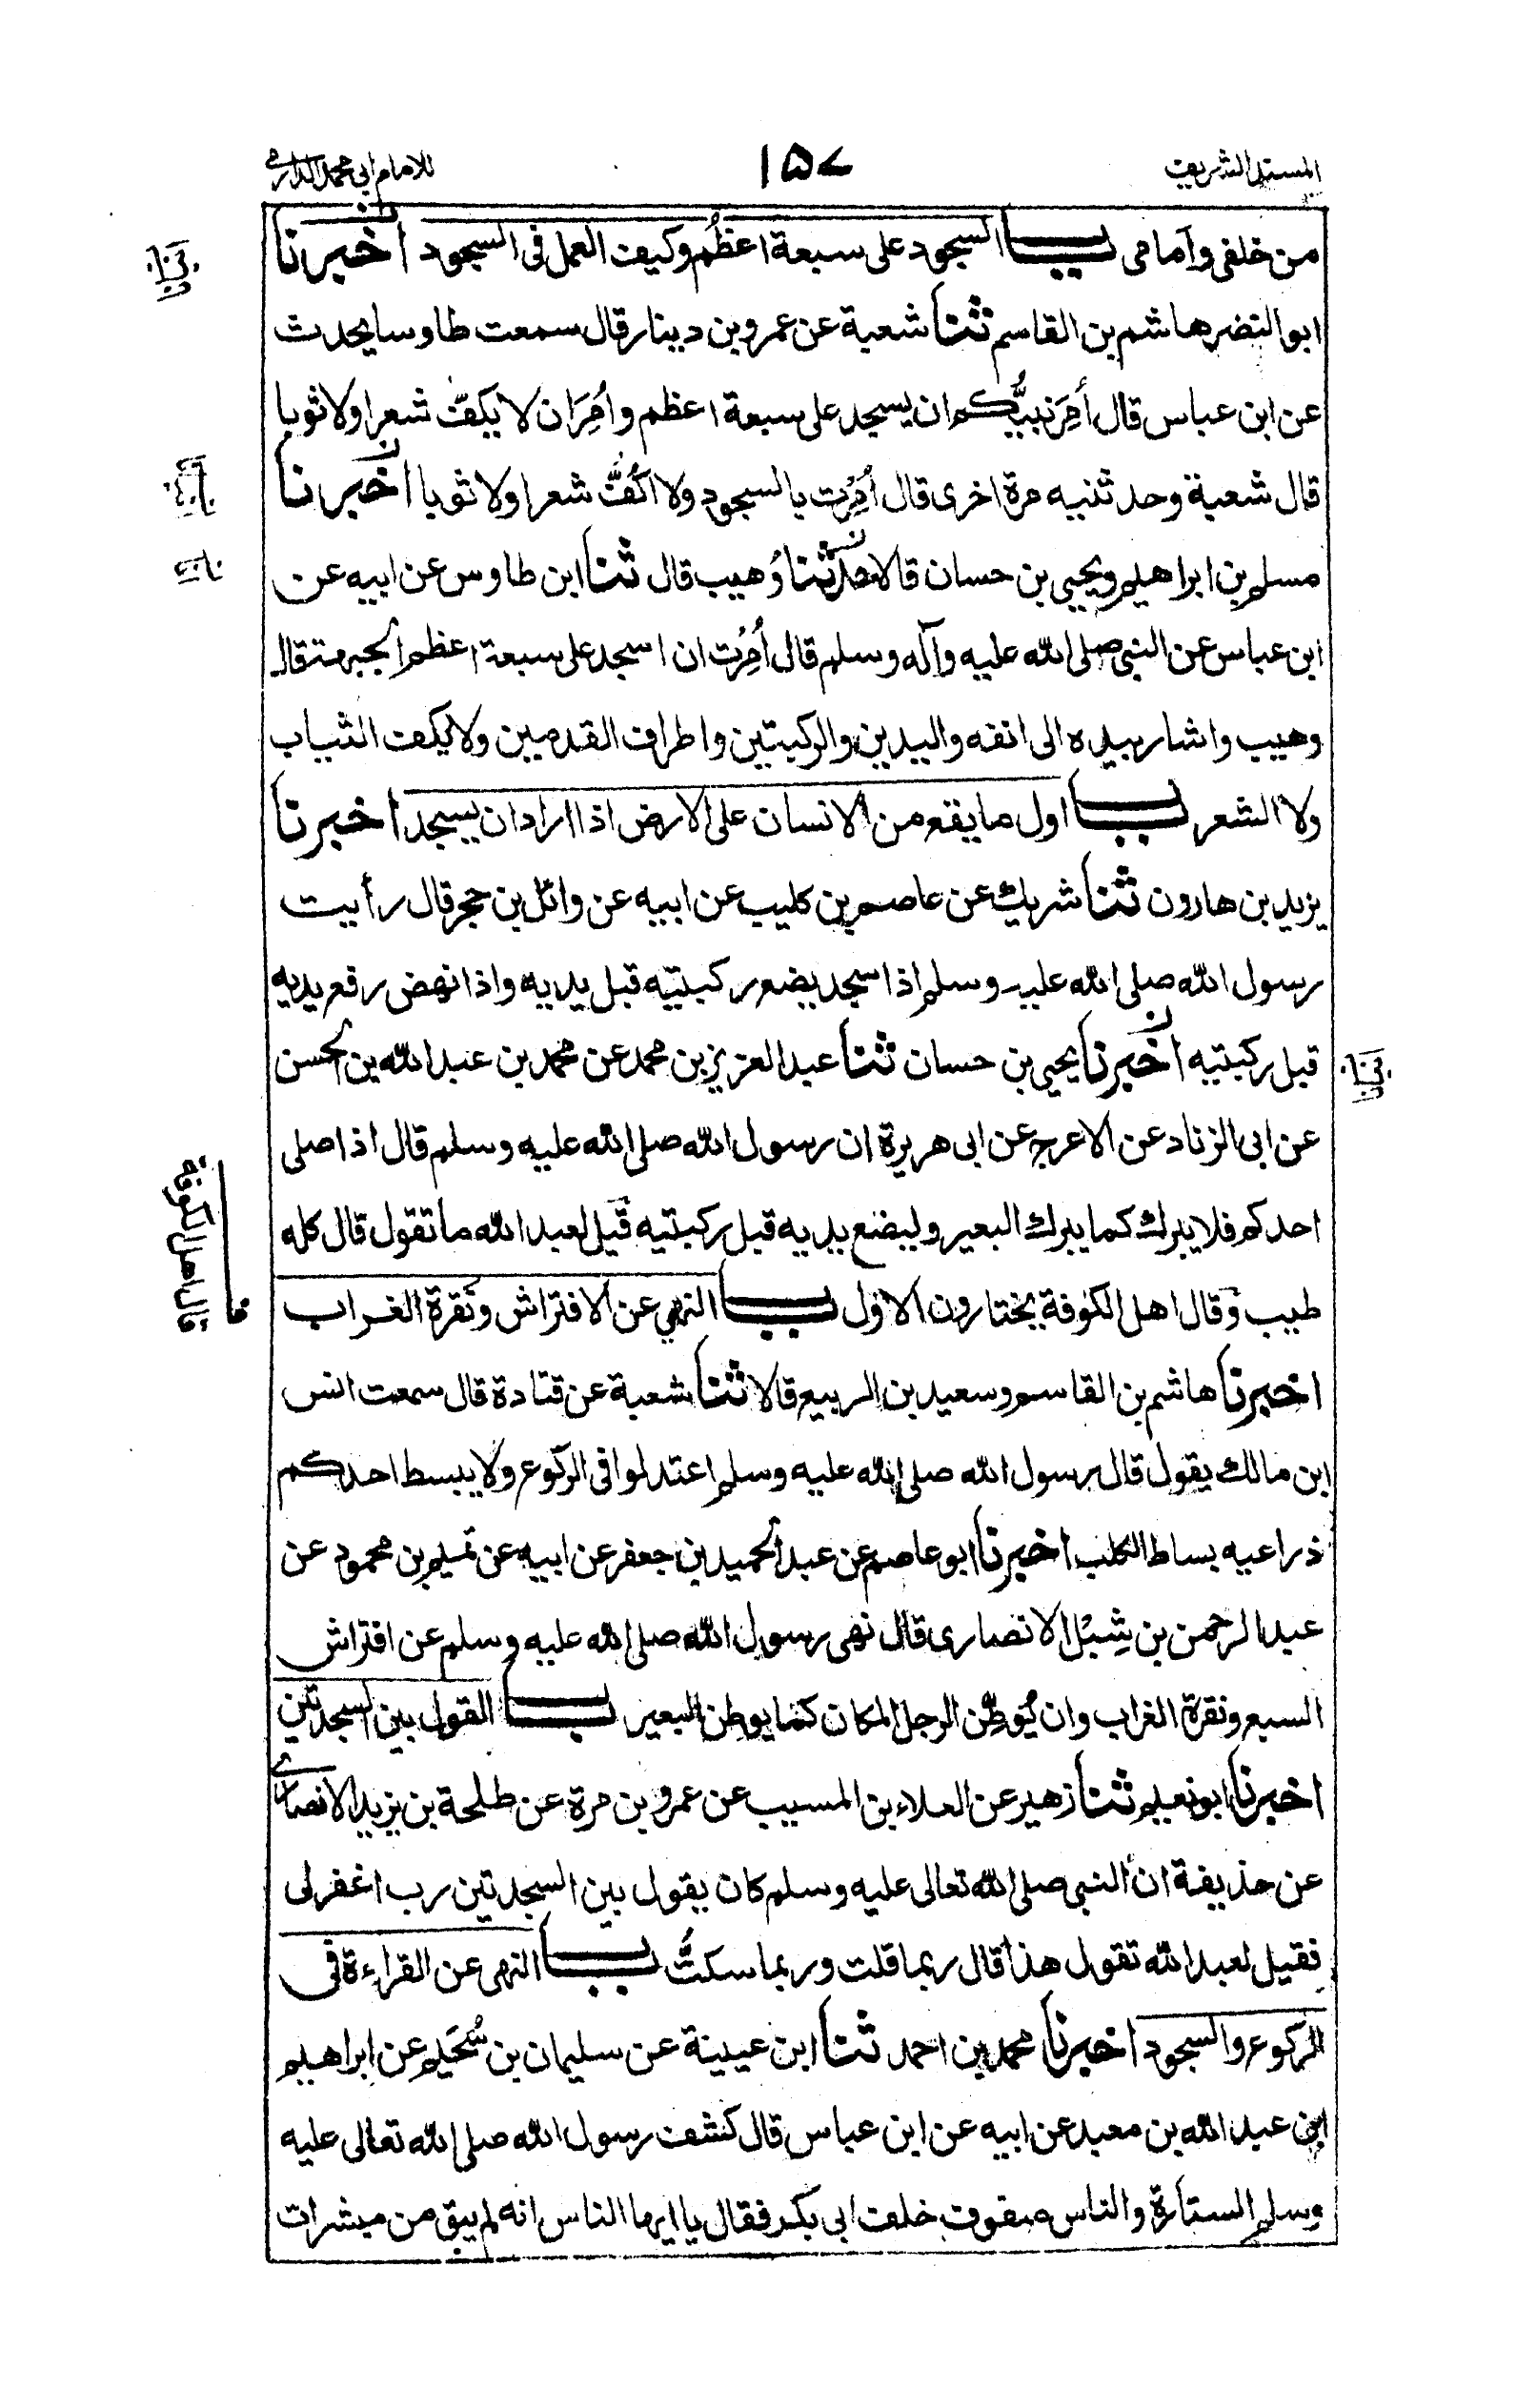 المسند الشريف ١٥٧ للامام ابي محمد الدارمي
من خلفى وامامى باب السجود على سبعة اعظُم وكيف العمل فى السجود اخبرنا
ابو النضر هاشم بن القاسم ثنا شعبة عن عمرو بن دينار قال سمعت طاوسا يحدث
عن ابن عباس قال أُمِرَ نبيُّكم ان يسجد على سبعة اعظم وأُمِرَ ان لا يكفّ شعرا ولا ثوبا
قال شعبة وحدثنيه مرة اخرى قال أُمِرْت بالسجود ولا اكُفَّ شعرا ولا ثوبا اخبرنا
مسلم بن ابراهيم ويحيى بن حسان قالا حدثنا وُهيب قال ثنا ابن طاوس عن ابيه عن
ابن عباس عن النبى صلى الله عليه وآله وسلم قال أُمِرْت ان اسجد على سبعة اعظم الجبهة قال
وهيب واشار بيده الى انفه واليدين والركبتين واطراف القدمين ولا يكف الثياب
ولا الشعر باب اول ما يقع من الانسان على الارض اذا اراد ان يسجد اخبرنا
يزيد بن هارون ثنا شريك عن عاصم بن كليب عن ابيه عن وائل بن حجر قال رأيت
رسول الله صلى الله عليه وسلم اذا سجد يضع ركبتيه قبل يديه واذا نهض رفع يديه
قبل ركبتيه اخبرنا يحيى بن حسان ثنا عبد العزيز بن محمد عن محمد بن عبد الله بن الحسن
عن ابى الزناد عن الاعرج عن ابى هريرة ان رسول الله صلى الله عليه وسلم قال اذا صلى
احدكم فلا يبرك كما يبرك البعير وليضع يديه قبل ركبتيه قيل لعبد الله ما تقول قال كله
طيب وقال اهل الكوفة يختارون الاول باب النهي عن الافتراش ونقرة الغراب
اخبرنا هاشم بن القاسم وسعيد بن الربيع قالا ثنا شعبة عن قتادة قال سمعت انس
ابن مالك يقول قال رسول الله صلى الله عليه وسلم اعتدلوا فى الركوع ولا يبسط احدكم
ذراعيه بساط الكلب اخبرنا ابو عاصم عن عبد الحميد بن جعفر عن ابيه عن تميم بن محمود عن
عبد الرحمن بن شِبْل الانصارى قال نهى رسول الله صلى الله عليه وسلم عن افتراش
السبع ونقرة الغراب وان يُوطِّن الرجل المكان كما يوطن البعير باب القول بين السجدتين
اخبرنا ابو نعيم ثنا زهير عن العلاء بن المسيب عن عمرو بن مرة عن طلحة بن يزيد الانصارى
عن حذيفة ان النبى صلى الله تعالى عليه وسلم كان يقول بين السجدتين رب اغفرلى
فقيل لعبد الله تقول هذا قال ربما قلت وربما سكتُّ باب النهى عن القراءة فى
الركوع والسجود اخبرنا محمد بن احمد ثنا ابن عيينة عن سليمان بن سُحَيم عن ابراهيم
ابن عبد الله بن معبد عن ابيه عن ابن عباس قال كشف رسول الله صلى الله تعالى عليه
وسلم الستارة والناس صفوف خلف ابى بكر فقال يا ايها الناس انه لم يبق من مبشرات
قال اهل الكوفة